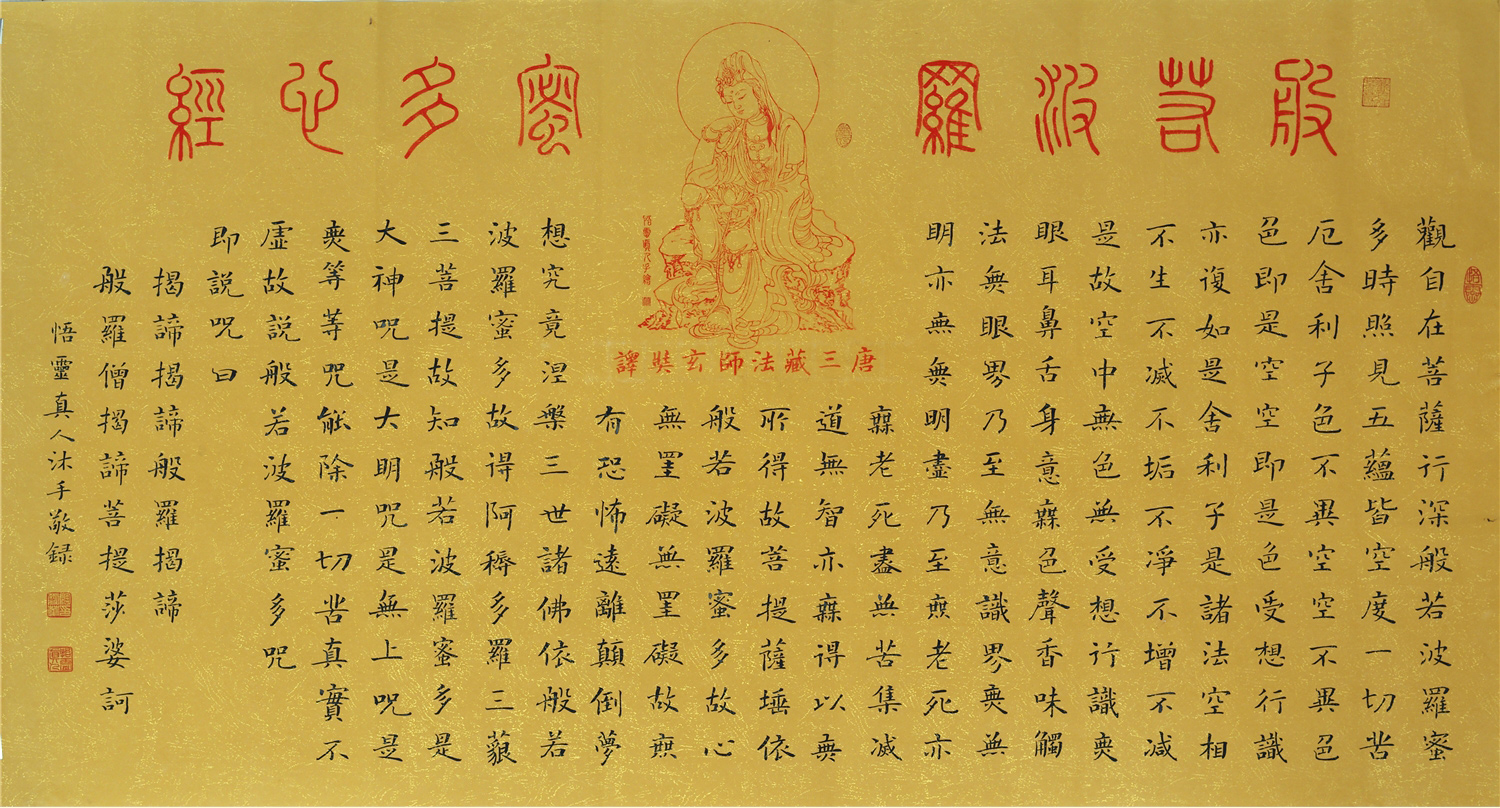 般若波羅蜜多心經
唐三藏法師玄奘譯
觀自在菩薩行深般若波羅蜜
多時照見五蘊皆空度一切苦
厄舍利子色不異空空不異色
色即是空空即是色受想行識
亦復如是舍利子是諸法空相
不生不滅不垢不淨不增不減
是故空中無色無受想行識無
眼耳鼻舌身意無色聲香味觸
法無眼界乃至無意識界無無
明亦無無明盡乃至無老死亦
無老死盡無苦集滅
道無智亦無得以無
所得故菩提薩埵依
般若波羅蜜多故心
無罣礙無罣礙故無
有恐怖遠離顛倒夢
想究竟涅槃三世諸佛依般若
波羅蜜多故得阿耨多羅三藐
三菩提故知般若波羅蜜多是
大神咒是大明咒是無上咒是
無等等咒能除一切苦真實不
虛故說般若波羅蜜多咒
即說咒曰
揭諦揭諦般羅揭諦
般羅僧揭諦菩提莎婆訶
悟靈真人沐手敬録